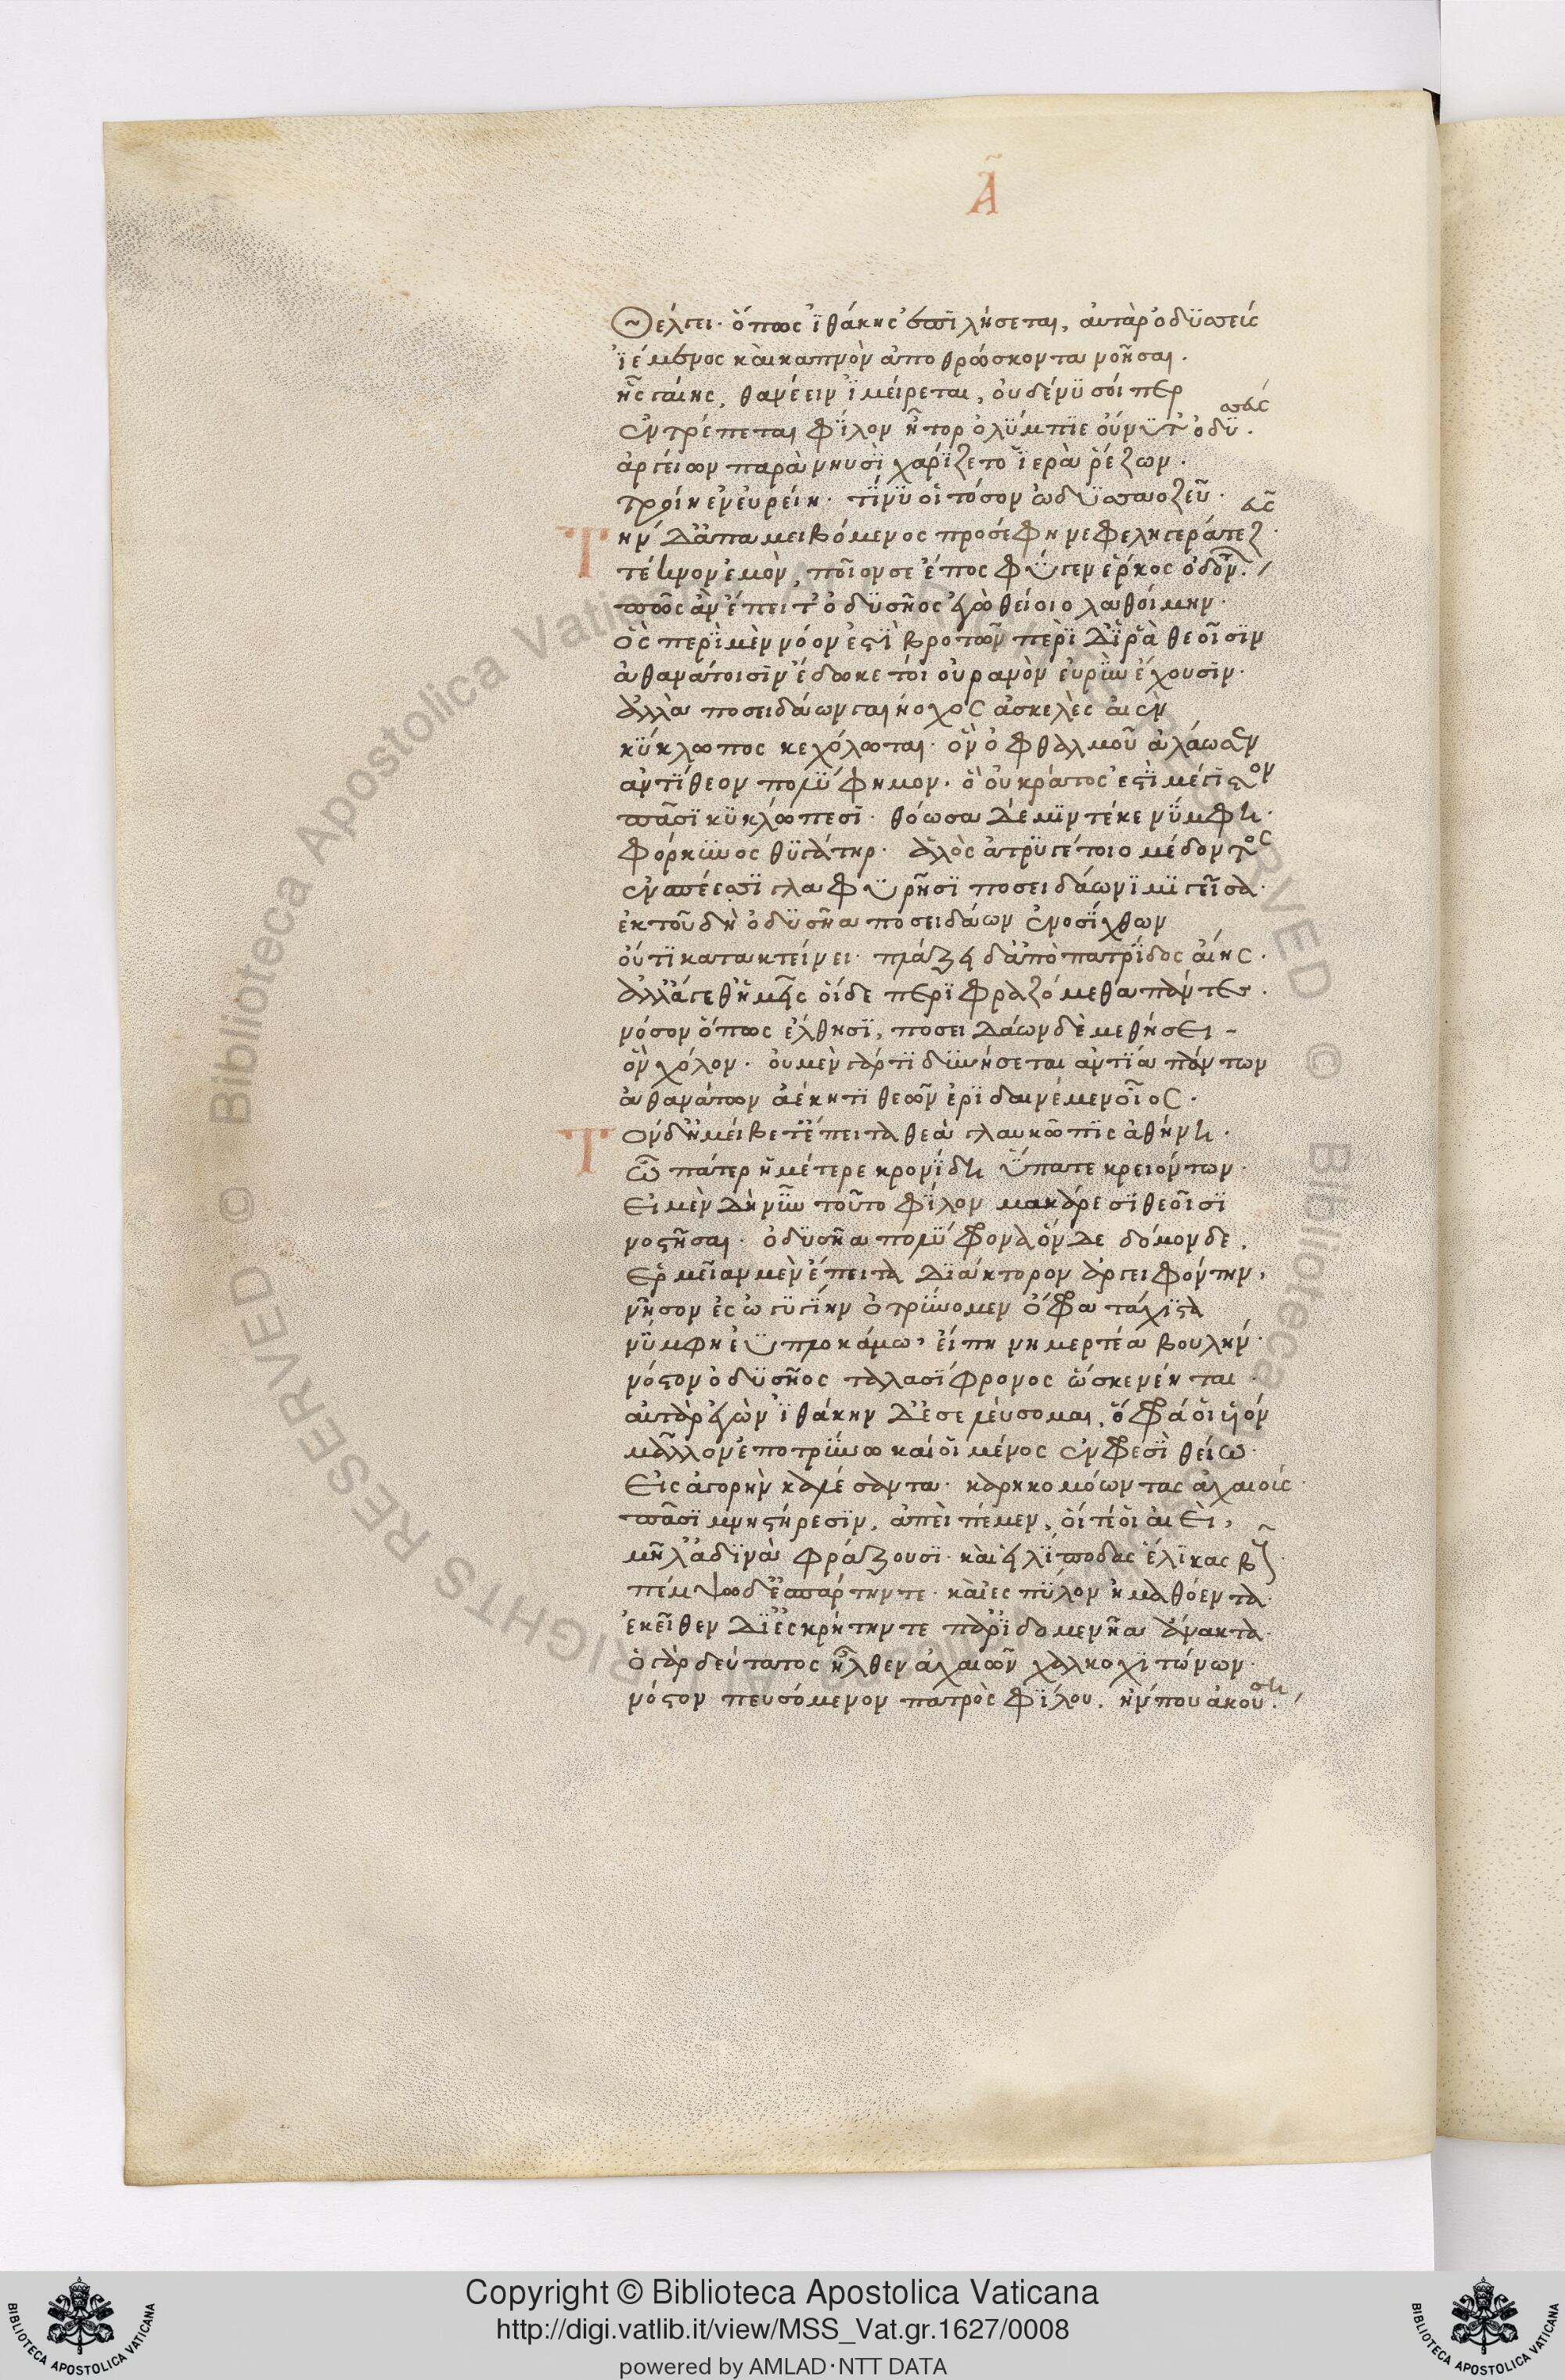 Ã
Θέλγει· ὅπως ἰθάκης ἐπιλήσεται, αὐτὰρ ὀδυσσεὺς
ἱέμενος καὶ καπνὸν ἀποθρώσκοντα νοῆσαι.
ἧς γαίης, θανέειν ἱμείρεται, οὐδέ νυ σόι περ
ἐντρέπεται φίλον ἦτορ ὀλύμπιε οὔ νύ τ' ὀδυσσεὺς.
ἀργείων παρὰ νηυσὶ χαρίζετο ἱερὰ ῥέζων.
τροίη ἐν εὐρείη· τί νύ οἱ τόσον ὠδύσαο ζεῦ.
Τὴν δ' ἀπαμειβόμενος προσέφη νεφεληγερέτα ζεὺς
τέκνον ἐμὸν, ποῖον σε ἔπος φύγεν ἕρκος ὀδόντων.
πῶς ἂν ἔπειτ' ὀδυσῆος ἐγὼ θείοιο λαθοίμην.
ὃς περὶ μὲν νόον ἐστὶ βροτῶν περὶ δ' ἱρὰ θεοῖσιν
ἀθανάτοισιν ἔδωκε τοὶ οὐρανὸν εὐρὺν ἔχουσιν.
ἀλλὰ ποσειδάων γαιήοχος ἀσκελὲς αἰὲν
κύκλωπος κεχόλωται· ὃν ὀφθαλμοῦ ἀλάωσεν
ἀντίθεον πολύφημον. ὅου κράτος ἐστὶ μέγιστον
πᾶσι κυκλώπεσι· θόωσα δέ μιν τέκε νύμφη.
φόρκυνος θυγάτηρ· ἁλὸς ἀτρυγέτοιο μέδοντος
ἐν σπέεσσι γλαφυρῆσι ποσειδάωνι μιγεῖσα.
ἐκ τοῦ δὴ ὀδυσῆα ποσειδάων ἐνοσίχθων
οὔτι κατακτείνει· πλάζει δ' ἀπὸ πατρίδος αἴης.
ἀλλ' ἄγεθ' ἡμεῖς οἵδε περιφραζόμεθα πάντες.
νόστον ὅπως ἔλθησι, ποσειδάων δὲ μεθήσει
ὃν χόλον· οὐ μὲν γάρ τι δυνήσεται ἀντία πάντων
ἀθανάτων ἀέκητι θεῶν ἐριδαινέμεν οἶος.
Τὸν δ' ἠμείβετ' ἔπειτα θεὰ γλαυκῶπις ἀθήνη.
ὦ πάτερ ἡμέτερε κρονίδη ὕπατε κρειόντων.
εἰ μὲν δὴ νῦν τοῦτο φίλον μακάρεσι θεοῖσι
νοστῆσαι· ὀδυσῆα πολύφρονα ὅνδε δόμονδε.
ἑρμείαν μὲν ἔπειτα διάκτορον ἀργειφόντην,
νῆσον ἐς ὠγυγίην ὀτρύνομεν ὄφρα τάχιστα
νύμφη ἐυπλοκάμω, εἴπη νημερτέα βουλήν.
νόστον ὀδυσῆος ταλασίφρονος ὥς κε νέηται.
αὐτὰρ ἐγὼν ἰθάκην δ' ἐσελεύσομαι, ὄφρά οἱ υἱὸν
μᾶλλον ἐποτρύνω καί οἱ μένος ἐν φρεσὶ θείω.
εἰς ἀγορὴν καλέσαντα· καρηκομόωντας ἀχαιοὺς.
πᾶσι μνηστήρεσιν, ἀπειπέμεν, οἵ τέ οἱ αἰεὶ,
μῆλ' ἀδινὰ σφάζουσι· καὶ εἰλίποδας ἕλικας βοῦς.
πέμψω δ' ἐσπάρτην τε· καὶ ἐς πύλον ἠμαθόεντα.
ἐκεῖθεν δ' ἐς κρήτην τε παρ' ἰδομενῆα ἄνακτα.
ὃ γὰρ δεύτατος ἦλθεν ἀχαιῶν χαλκοχιτώνων.
νόστον πευσόμενον πατρὸς φίλου. ἤν που ἀκούση.
Copyright © Biblioteca Apostolica Vaticana
http://digi.vatlib.it/view/MSS_Vat.gr.1627/0008
powered by AMLAD·NTT DATA
BIBLIOTECA APOSTOLICA VATICANA
BIBLIOTECA APOSTOLICA VATICANA